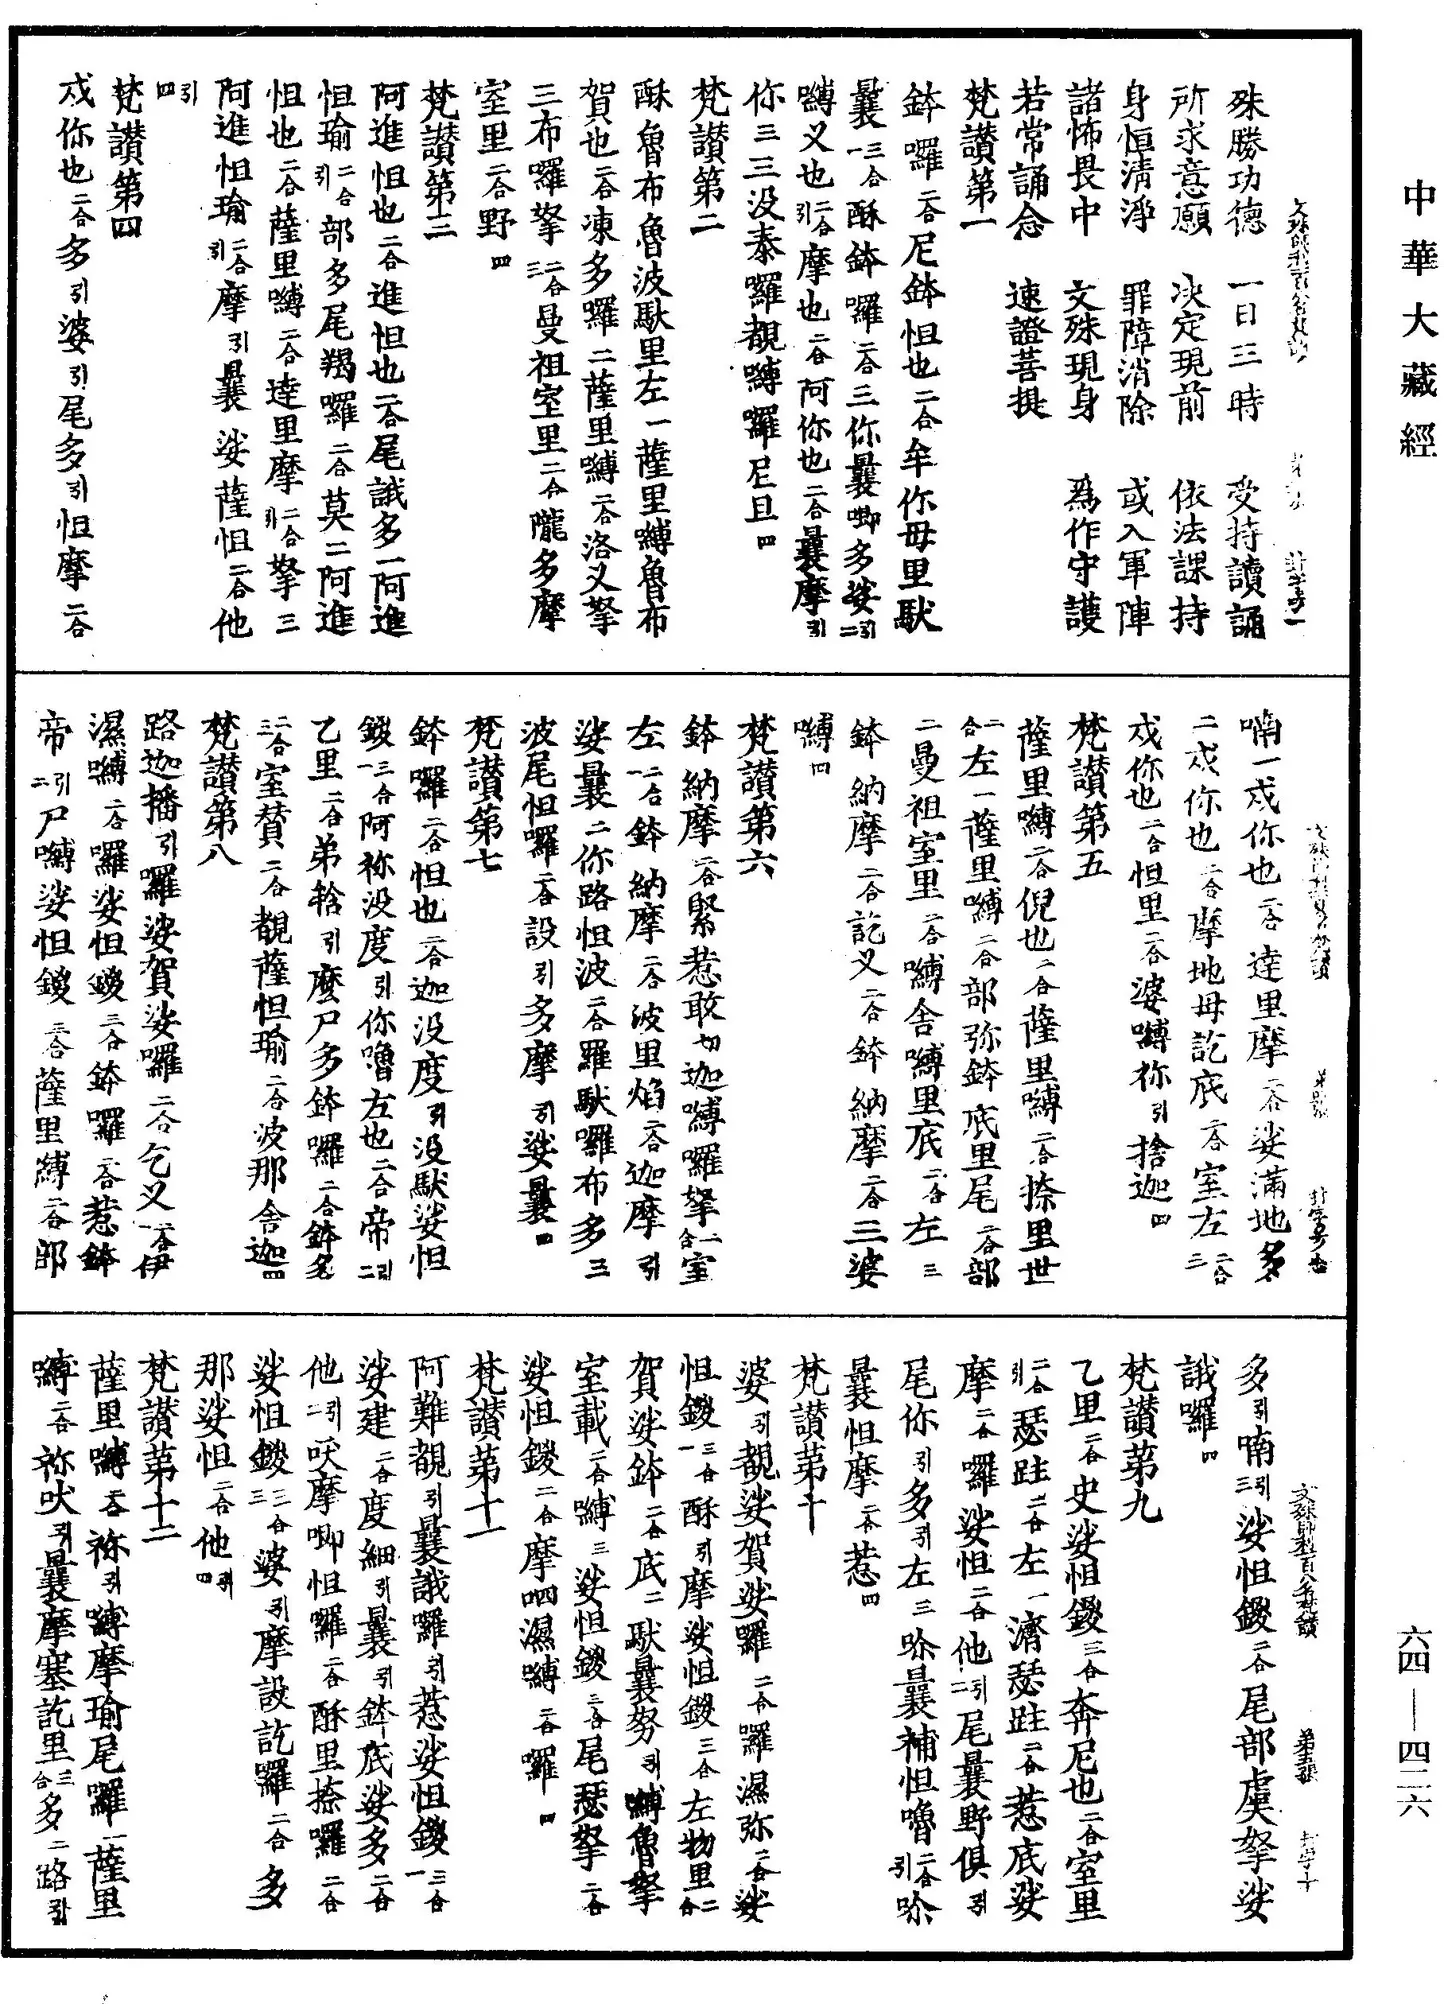 中華大藏經
殊勝功德　一日三時　受持讀誦
所求意願　決定現前　依法課持
身恒清淨　罪障消除　或入軍陣
諸怖畏中　文殊現身　為作守護
若常誦念　速證菩提
梵讃第一
鉢囉二合尼鉢怛也二合牟你毋里馱
曩一三合酥鉢囉二合三你曩唧多娑引二
嚩乂也引二合摩也二合阿你也二合曩摩引
你三三没㤗囉覩嚩囉尼旦四
梵讃第二
酥魯布魯波馱里左一薩里嚩魯布
賀也二合凍多囉二薩里嚩二合洛乂拏
三布囉拏二合三曼祖室里二合隴多摩
室里二合野四
梵讃第三
阿進怛也二合進怛也二合尾誐多一阿進
怛瑜二合引部多尾羯囉二合莫二阿進
怛也二合薩里嚩二合達里摩二合引拏三
阿進怛瑜二合引摩引曩娑薩怛二合他
引四
梵讃第四
戍你也二合多引婆引尾多引怛摩二合
喃一戍你也二合達里摩二合娑滿地多
二戍你也二合摩地毋訖底二合室左二合三
戍你也二合怛里二合婆嚩祢引捨迦四
梵讃第五
薩里嚩二合倪也二合薩里嚩二合捺里世
二合左一薩里嚩二合部弥鉢底里尾二合部
二曼祖室里二合嚩舍嚩里底二合左三
鉢納摩二合訖乂二合鉢納摩二合三婆
嚩四
梵讃第六
鉢納摩二合緊惹敢切迦嚩囉拏二合室
左一二合鉢納摩二合波里焰二合迦摩引
娑曩二你路怛波二合羅馱囉布多三
波尾怛囉二合設引多摩引娑曩四
梵讃第七
鉢囉二合怛也二合迦没度引没馱娑怛
鑁一三合阿祢没度引你嚕左也二合帝引二
乙里二合弟輅引麼尸多鉢囉二合鉢多
二合三室賛二合覩薩怛瑜二合波那舍迦四
梵讃第八
路迦播引囉娑賀娑囉二合乞乂一二合伊
濕嚩二合囉娑怛鑁三合鉢囉二合惹鉢
帝引二尸嚩娑怛鑁三合薩里嚩二合部
多引喃引三娑怛鑁二合尾部虞拏娑
誐囉四
梵讃第九
乙里二合史娑怛鑁三合奔尼也二合室里
二合引瑟跓二合左一濟瑟跓二合惹底娑
摩二合囉娑怛二合他引二尾曩野俱引
尾你引多引左三哧曩補怛嚕二合引哧
曩怛摩二合惹四
梵讃第十
婆引覩娑賀娑囉二合囉濕弥二合娑
怛鑁一三合酥引摩娑怛鑁三合左物里二合
賀娑鉢二合底二馱曩努引嚩魯拏
室載二合嚩三娑怛鑁三合尾瑟拏二合
娑怛鑁二合摩呬濕嚩二合囉四
梵讃第十一
阿難覩引曩誐囉引惹娑怛鑁一三合
娑建二合度細引曩引鉢底娑多二合
他引二吠摩唧怛囉二合酥里捺囉二合
娑怛鑁三三合婆引摩設訖囉二合多
那娑怛二合他引四
梵讃第十二
薩里嚩二合祢引嚩摩瑜尾囉一薩里
嚩二合祢吠引曩摩塞訖里三合多二路引
六四—四二六